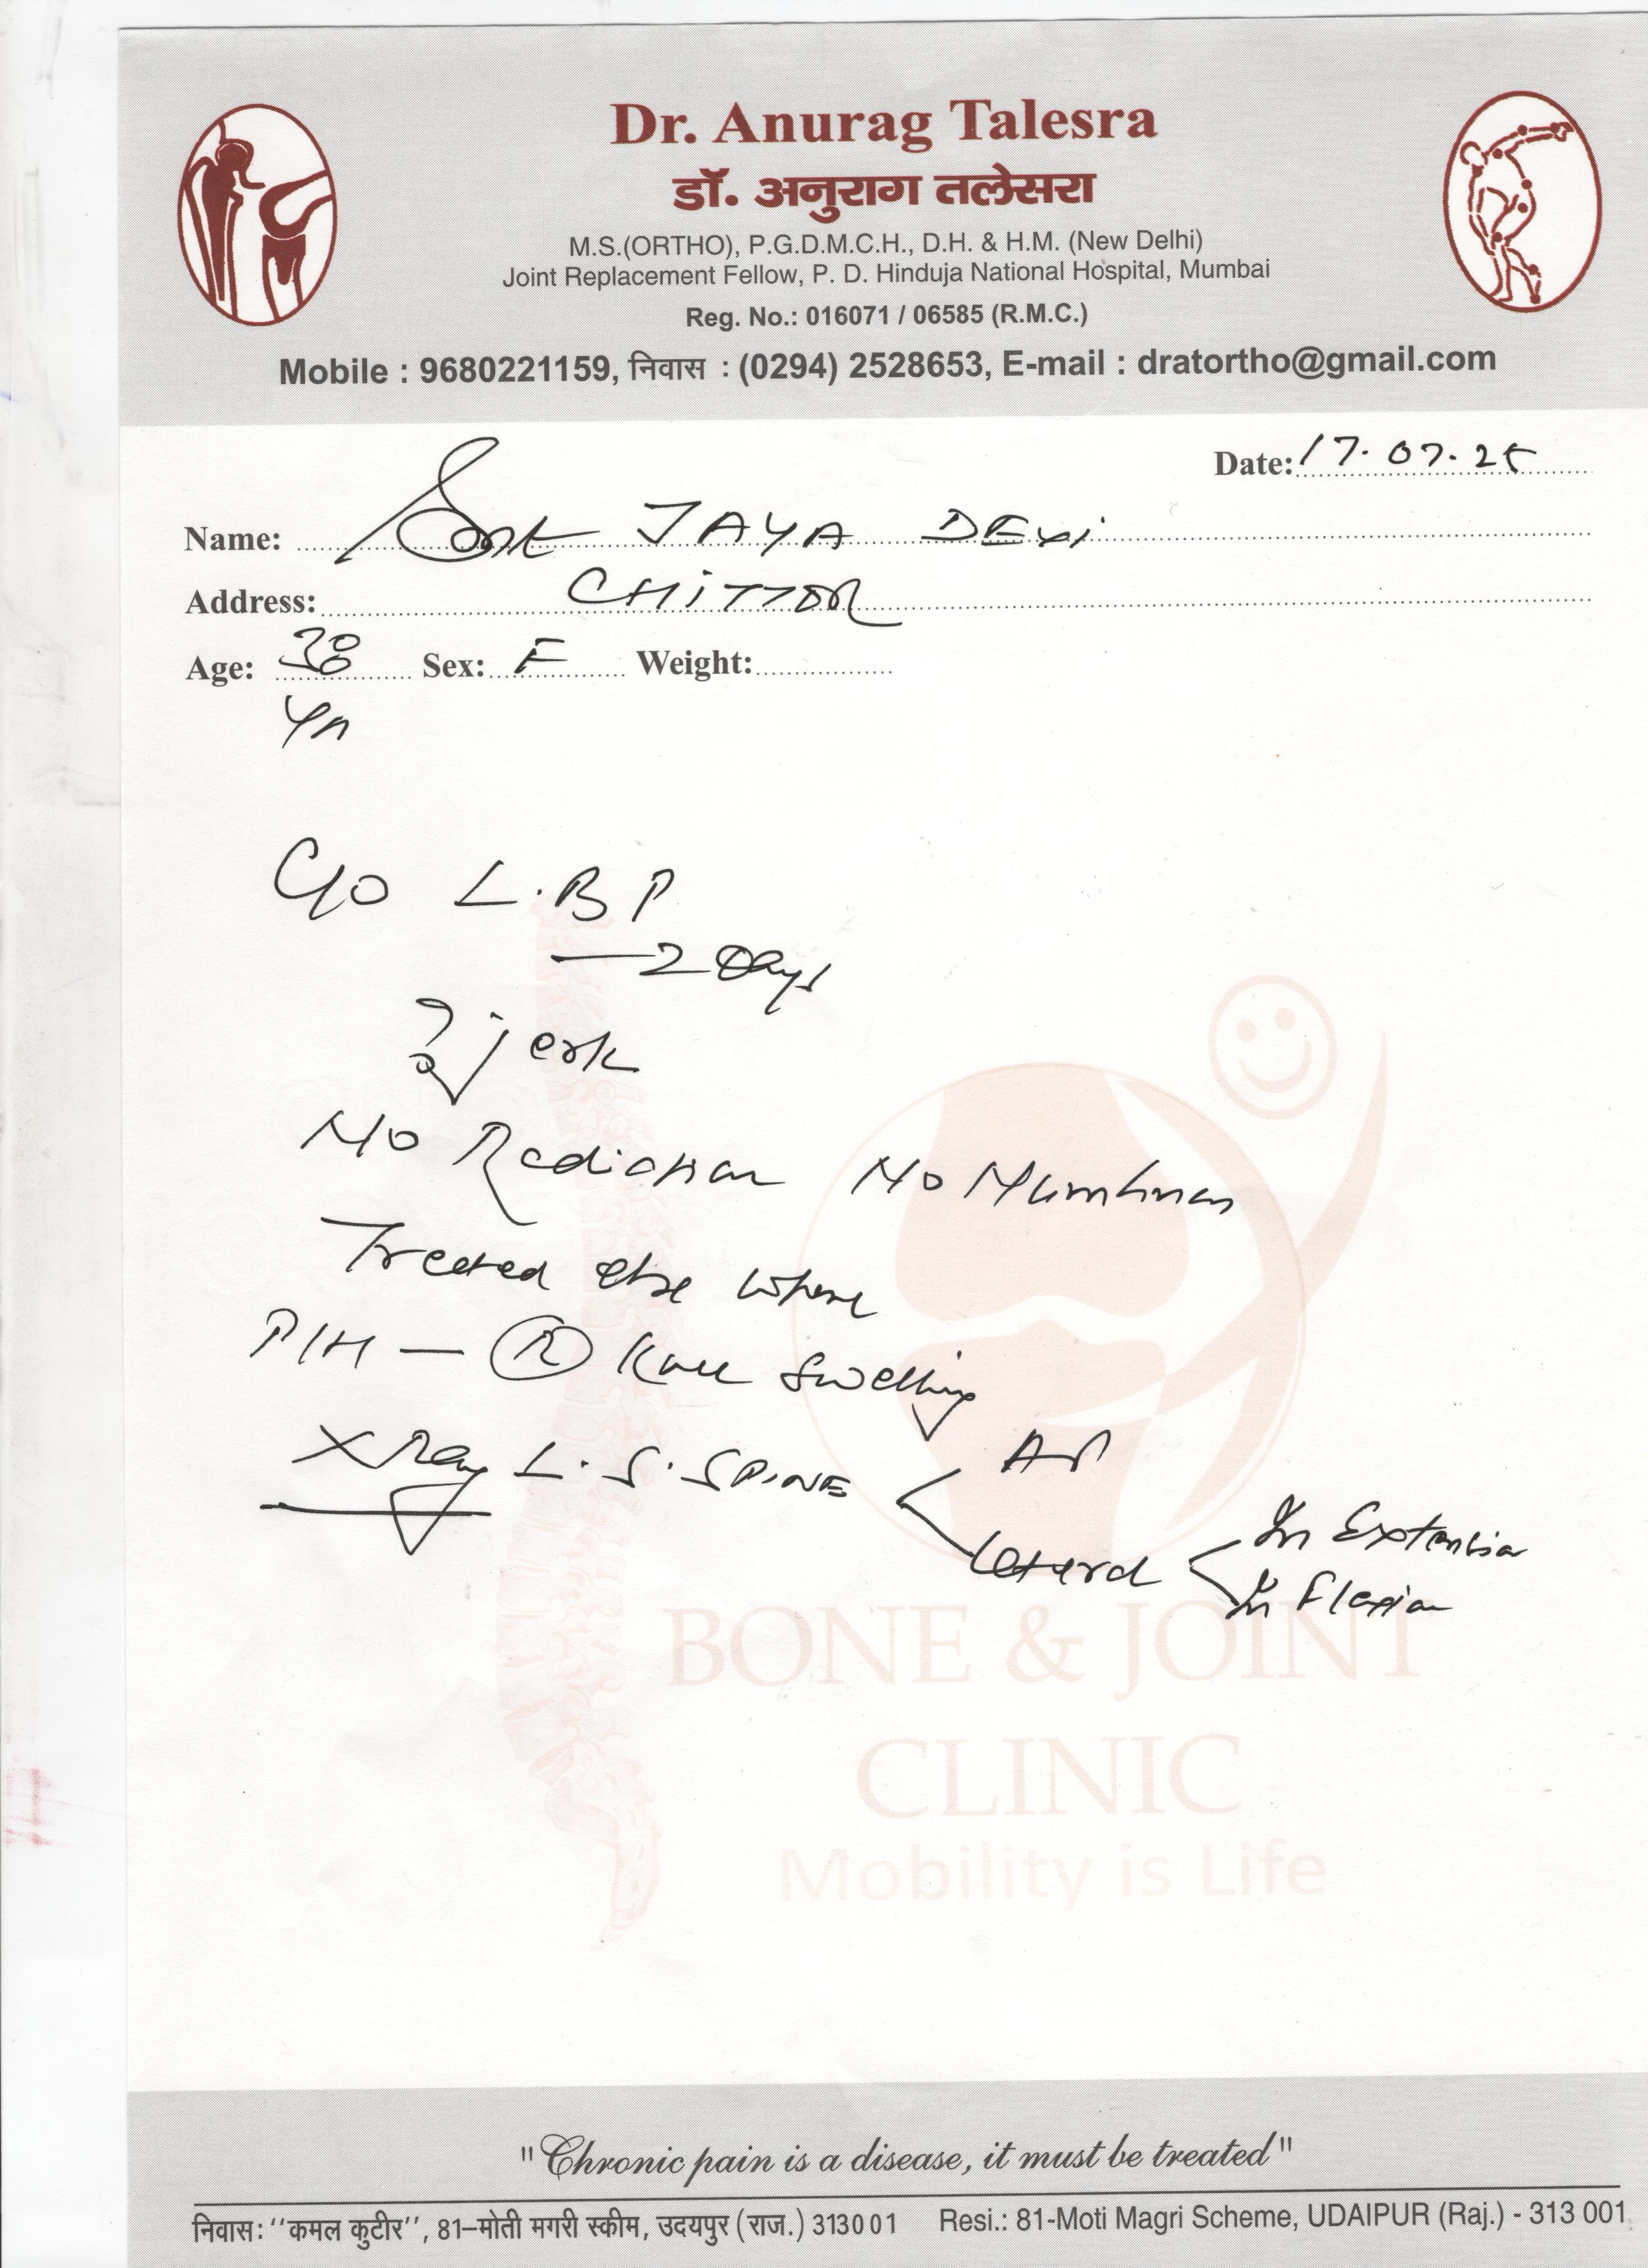 Dr. Anurag Talesra
डॉ. अनुराग तलेसरा
M.S.(ORTHO), P.G.D.M.C.H., D.H. & H.M. (New Delhi)
Joint Replacement Fellow, P. D. Hinduja National Hospital, Mumbai
Reg. No.: 016071 / 06585 (R.M.C.)
Mobile : 9680221159, निवास : (0294) 2528653, E-mail : dratortho@gmail.com
Date: 17.07.25
Name: Smt JAYA DEVi
Address: CHiTTOR
Age: Sex: F Weight:
C/O L.B P
— 2 Days
? jerk
No Radiation No Numbness
Treated else where
P/H — (R) Knee Swelling
X Ray L.S. SPiNE < AP
Lateral < In Extension
In Flexion
BONE & JOINT
CLINIC
Mobility is Life
"Chronic pain is a disease, it must be treated"
निवास: ''कमल कुटीर'', 81–मोती मगरी स्कीम, उदयपुर (राज.) 313001 Resi.: 81-Moti Magri Scheme, UDAIPUR (Raj.) - 313 001